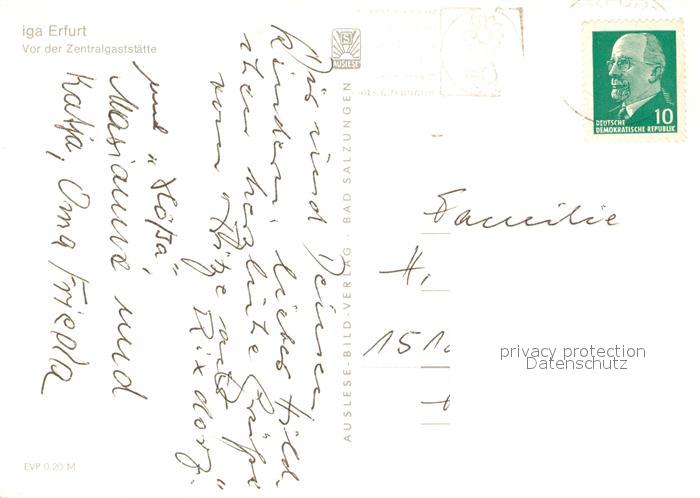 iga Erfurt
Vor der Zentralgaststätte
AUSLESE
Dir und Deinen
Kindern, liebes Hild.
herzliche Grüße
vom "Fritze aus
Rixdorf"
und "Hößa",
Marianne und
Katja, Oma Frieda
AUSLESE-BILD-VERLAG · BAD SALZUNGEN
EVP 0,20 M
DEUTSCHE
DEMOKRATISCHE REPUBLIK
10
Familie
H.
151
privacy protection
Datenschutz